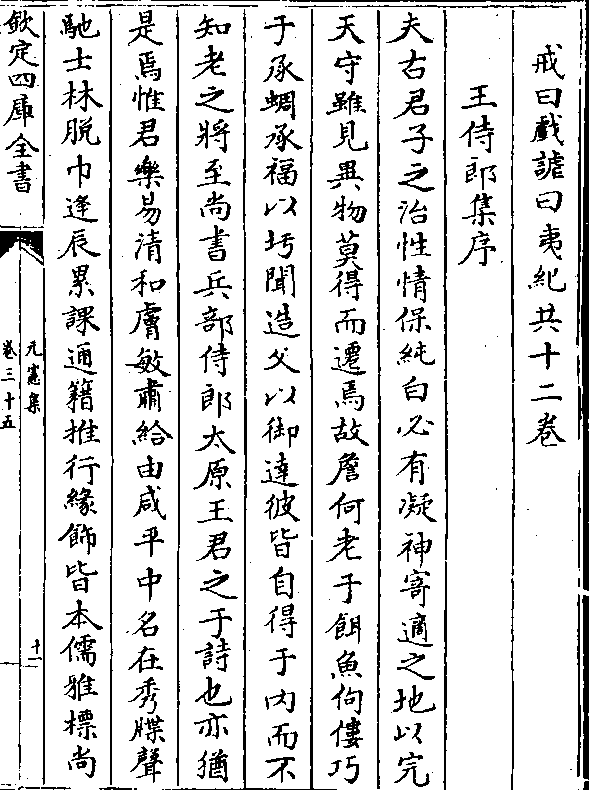 戒曰戲謔曰夷紀共十二卷
王侍郎集序
夫古君子之治性情保純白必有凝神寄適之地以完
天守雖見異物莫得而遷焉故詹何老于餌魚佝僂巧
于承蜩承福以圬聞造父以御達彼皆自得于内而不
知老之將至尚書兵部侍郎太原王君之于詩也亦猶
是焉惟君樂易清和膚敏肅給由咸平中名在秀牒聲
馳士林脱巾逢辰累課通籍推行緣飾皆本儒雅標尚
欽定四庫全書
元憲集
卷三十五
十一